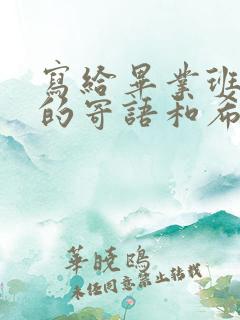 寫給畢業班
的寄語和希
華曉鷗
未經同意禁止轉載